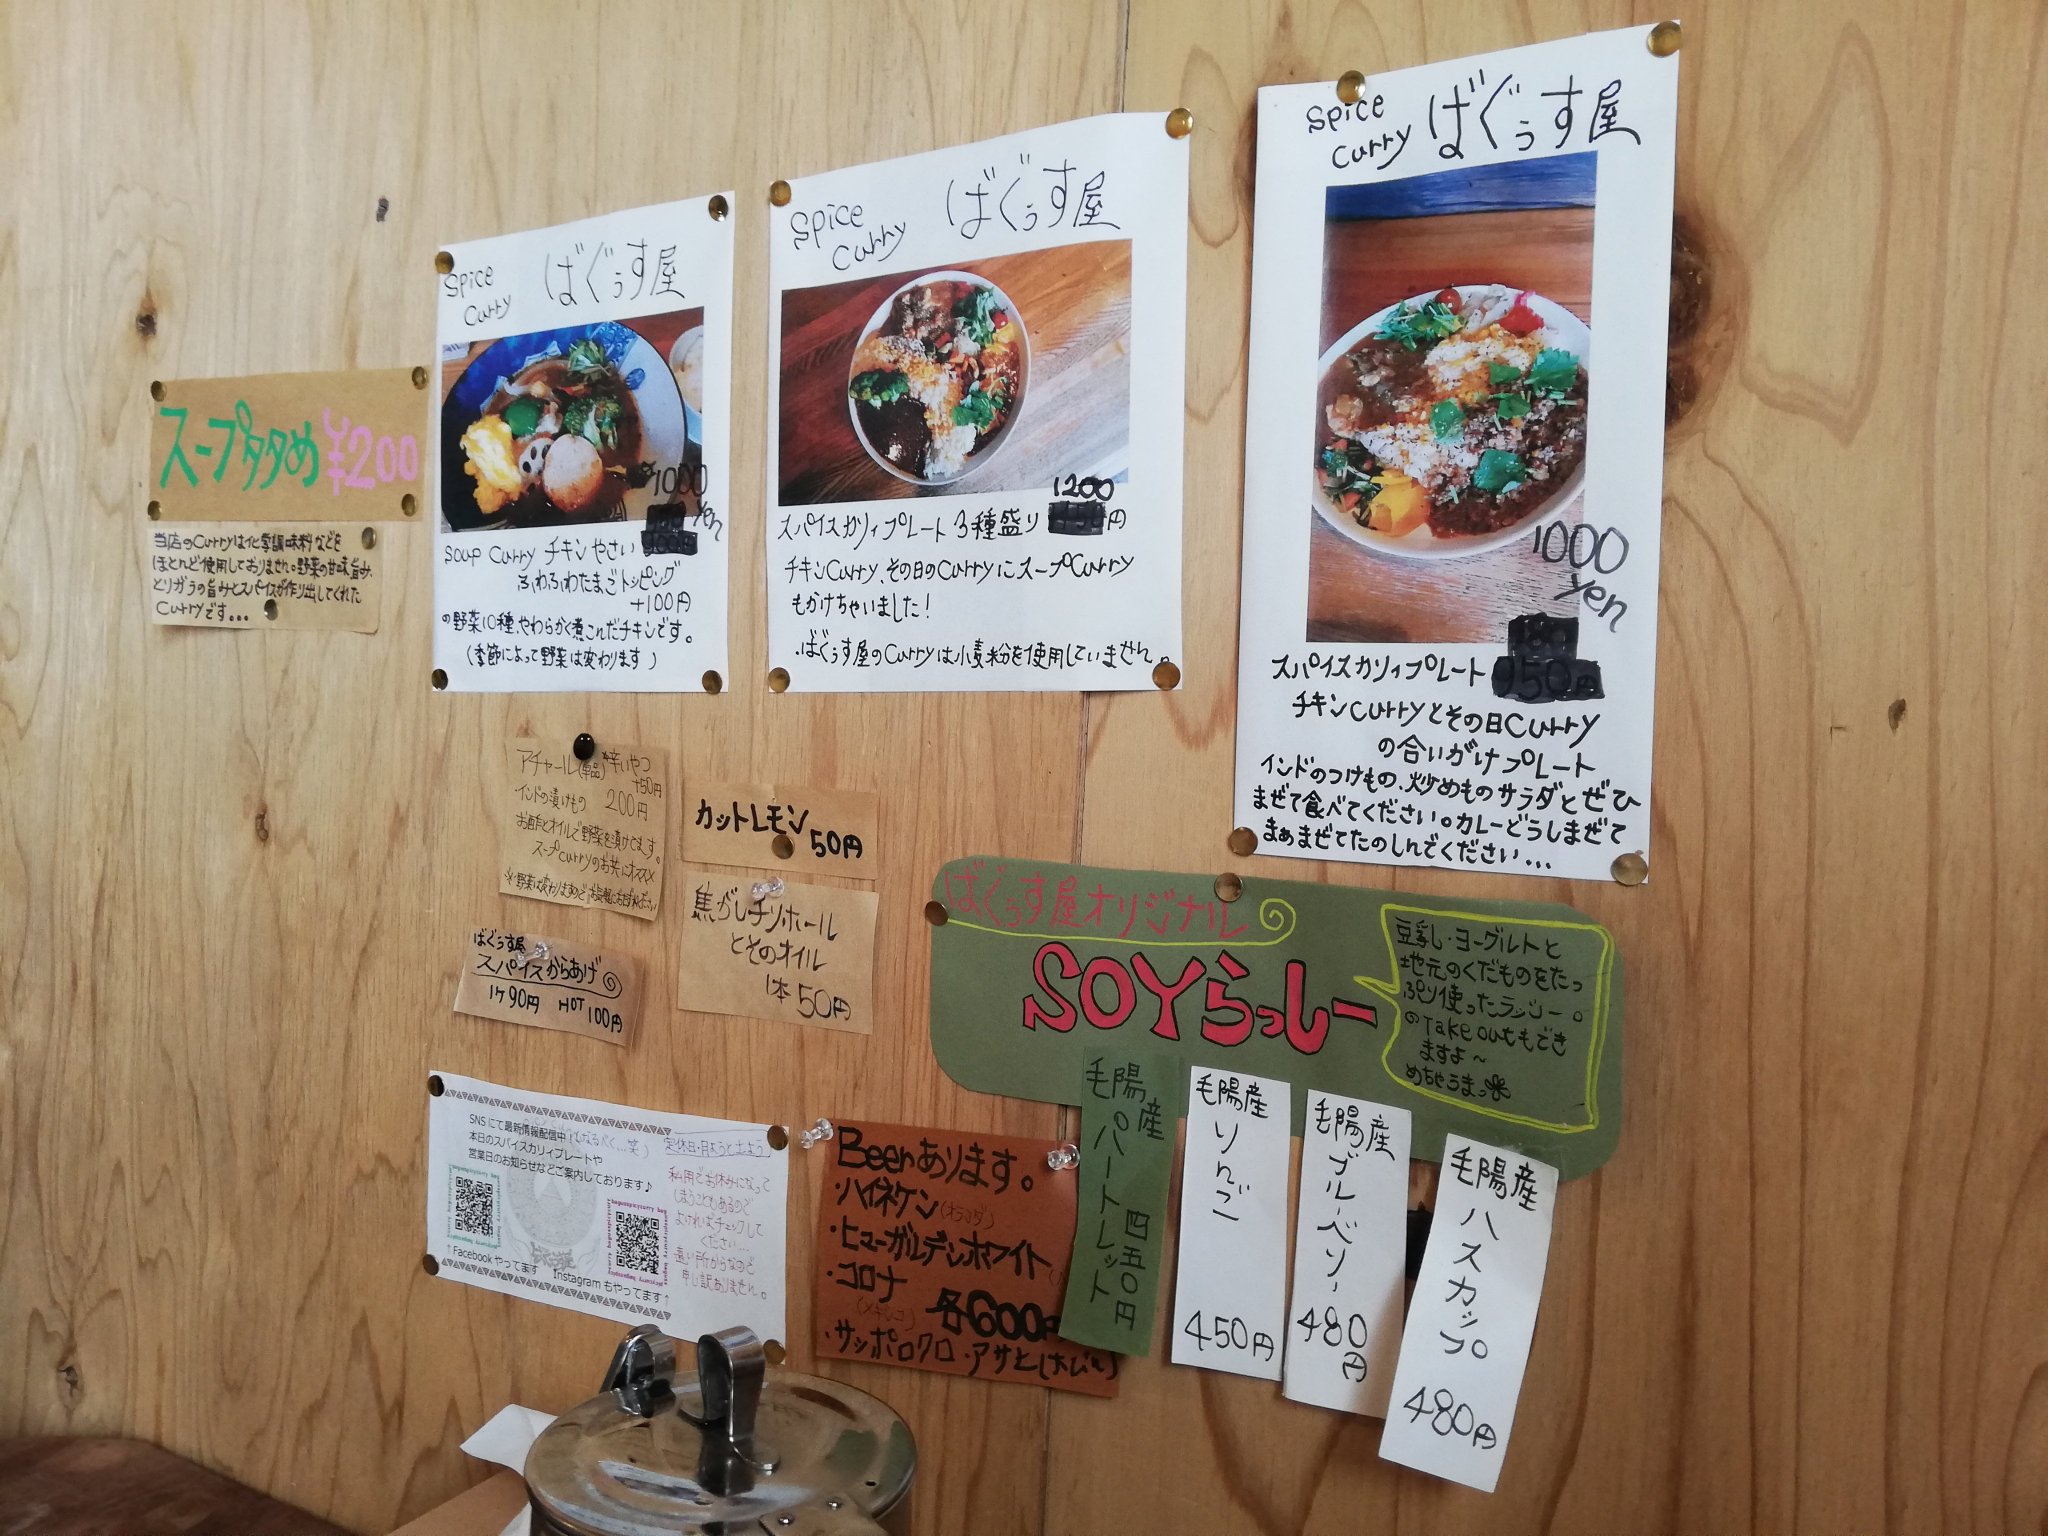 スープ大盛め ¥200
当店のCurryは化学調味料などを
ほとんど使用しておりません。野菜の甘味旨み、
とりガラの旨みとスパイスが作り出してくれた
Curryです...
Spice Curry ばぐぅす屋
1000 yen
Soup Curry チキンやさい
ふわふわたまごトッピング
+100円
の野菜10種、やわらかく煮こんだチキンです。
(季節によって野菜は変わります)
Spice Curry ばぐぅす屋
1200
スパイスカリィプレート 3種盛り 円
チキンCurry、その日のCurryにスープCurry
もかけちゃいました!
・ばぐぅす屋のCurryは小麦粉を使用していません。
Spice Curry ばぐぅす屋
1000 yen
スパイスカリィプレート 950円
チキンCurryとその日Curry
の合いがけプレート
インドのつけもの、炒めものサラダとぜひ
まぜて食べてください。カレーどうしまぜて
まぁまぜてたのしんでください...
アチャール(単品) *辛いやつ
+50円
・インドの漬けもの 200円
お酢とオイルで野菜を漬けてます。
スープCurryのお共にオススメ
※野菜は変わりますので
カットレモン
50円
焦がしチリホール
とそのオイル
1本50円
ばぐぅす屋
スパイスからあげ
1ケ90円 HOT 100円
ばぐぅす屋オリジナル
SOYらっしー
豆乳・ヨーグルトと
地元のくだものをたっ
ぷり使ったラッシー。
のTake outもでき
ますよ~
めちゃうまっ
毛陽産 パートレット 四五〇円
毛陽産 りんご 450円
毛陽産 ブルーベリー 480円
毛陽産 ハスカップ 480円
SNSにて最新情報配信中!(なるべく...笑)
本日のスパイスカリィプレートや
営業日のお知らせなどご案内しております♪
↑Facebookやってます
Instagramもやってます↑
定休日・月ようと土よう
私用でお休みになって
しまうこともあるので
よければチェックして
ください...
遠い所からなのに
申し訳ありません。
Beerあります。
・ハイネケン(オランダ)
・ヒューガルデンホワイト
・コロナ
(メキシコ) 各600円
・サッポロクロ・アサヒ